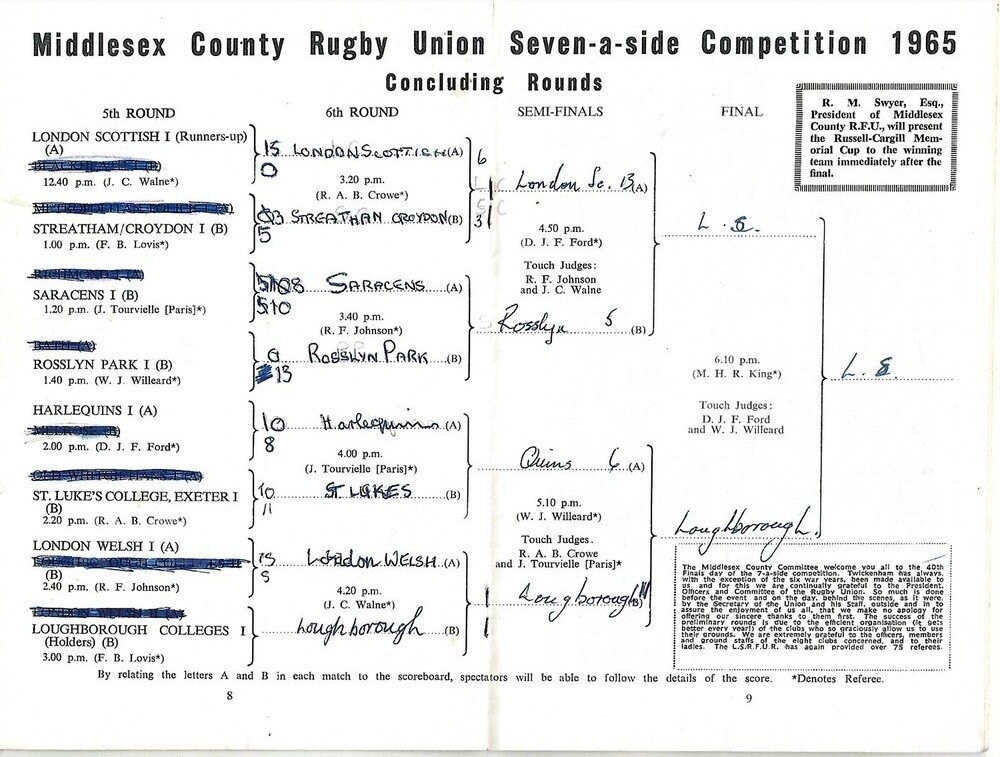 Middlesex County Rugby Union Seven-a-side Competition 1965
Concluding Rounds
5th ROUND
6th ROUND
SEMI-FINALS
FINAL
R. M. Swyer, Esq.,
President of Middlesex
County R.F.U., will present
the Russell-Cargill Mem-
orial Cup to the winning
team immediately after the
final.
LONDON SCOTTISH I (Runners-up)
(A)
12.40 p.m. (J. C. Walne*)
STREATHAM/CROYDON I (B)
1.00 p.m. (F. B. Lovis*)
RICHMOND I (A)
SARACENS I (B)
1.20 p.m. (J. Tourvielle [Paris]*)
BATH (A)
ROSSLYN PARK I (B)
1.40 p.m. (W. J. Willeard*)
HARLEQUINS I (A)
MELROSE (B)
2.00 p.m. (D. J. F. Ford*)
ST. LUKE'S COLLEGE, EXETER I
(B)
2.20 p.m. (R. A. B. Crowe*)
LONDON WELSH I (A)
(B)
2.40 p.m. (R. F. Johnson*)
LOUGHBOROUGH COLLEGES I
(Holders) (B)
3.00 p.m. (F. B. Lovis*)
15 LONDON SCOTTISH (A)
0
3.20 p.m.
(R. A. B. Crowe*)
STREATHAN CROYDON (B)
5
SARACENS (A)
3.40 p.m.
(R. F. Johnson*)
ROSSLYN PARK (B)
13
10 Harlequins (A)
8
4.00 p.m.
(J. Tourvielle [Paris]*)
10 ST LUKES (B)
11
15 LONDON WELSH (A)
5
4.20 p.m.
(J. C. Walne*)
Loughborough (B)
6
London Sc. 13 (A)
3
4.50 p.m.
(D. J. F. Ford*)
Touch Judges:
R. F. Johnson
and J. C. Walne
Rosslyn 5 (B)
Quins 6 (A)
5.10 p.m.
(W. J. Willeard*)
Touch Judges:
R. A. B. Crowe
and J. Tourvielle [Paris]*
Loughborough (B)
L. S.
6.10 p.m.
(M. H. R. King*)
Touch Judges:
D. J. F. Ford
and W. J. Willeard
Loughborough
L. S.
The Middlesex County Committee welcome you all to the 40th
Finals day of the 7-a-side competition. Twickenham has always,
with the exception of the six war years, been made available to
us and for this we are continually grateful to the President,
Officers and Committee of the Rugby Union. So much is done
before the event and on the day, behind the scenes, as it were,
by the Secretary of the Union and his Staff, outside and in to
assure the enjoyment of us all, that we make no apology for
offering our sincere thanks to them first. The success of the
preliminary rounds is due to the efficient organisation (it gets
better every year!) of the clubs who so graciously allow us to use
their grounds. We are extremely grateful to the officers, members
and ground staffs of the eight clubs concerned, and to their
ladies. The L.S.R.F.U.R. has again provided over 75 referees.
By relating the letters A and B in each match to the scoreboard, spectators will be able to follow the details of the score. *Denotes Referee.
8
9